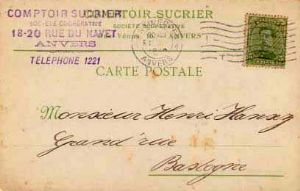 COMPTOIR SUCRIER
SOCIÉTÉ COOPÉRATIVE
18-20 RUE DU NAVET
ANVERS
TÉLÉPHONE 1221
COMPTOIR SUCRIER
SOCIÉTÉ COOPÉRATIVE
ANVERS
ANVERS
CARTE POSTALE
Monsieur Henri Hansez
Grand'rue
Bastogne